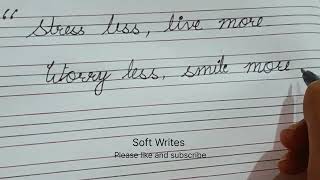 “ Stress less, live more
Worry less, smile more
Soft Writes
Please like and subscribe